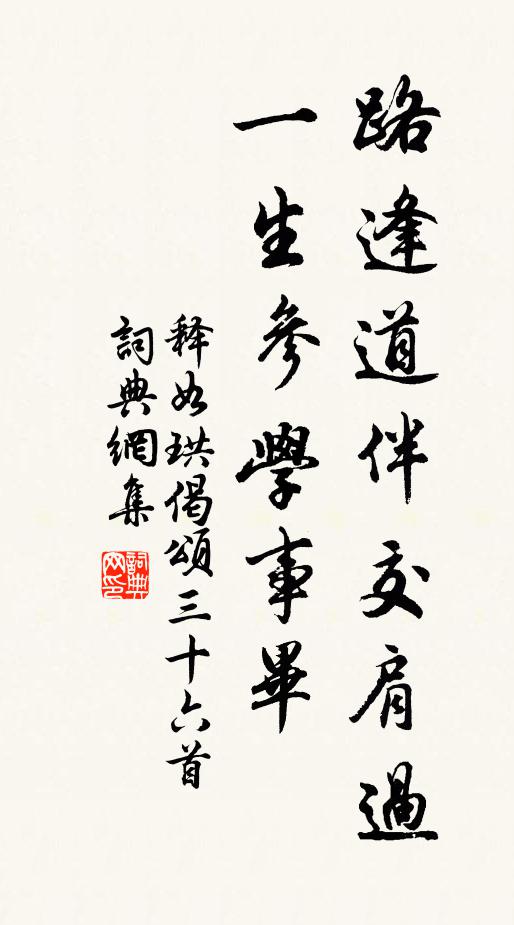 路逢道伴交肩過
一生參學事畢
释如珙偈頌三十六首
詞典網集
詞典網印